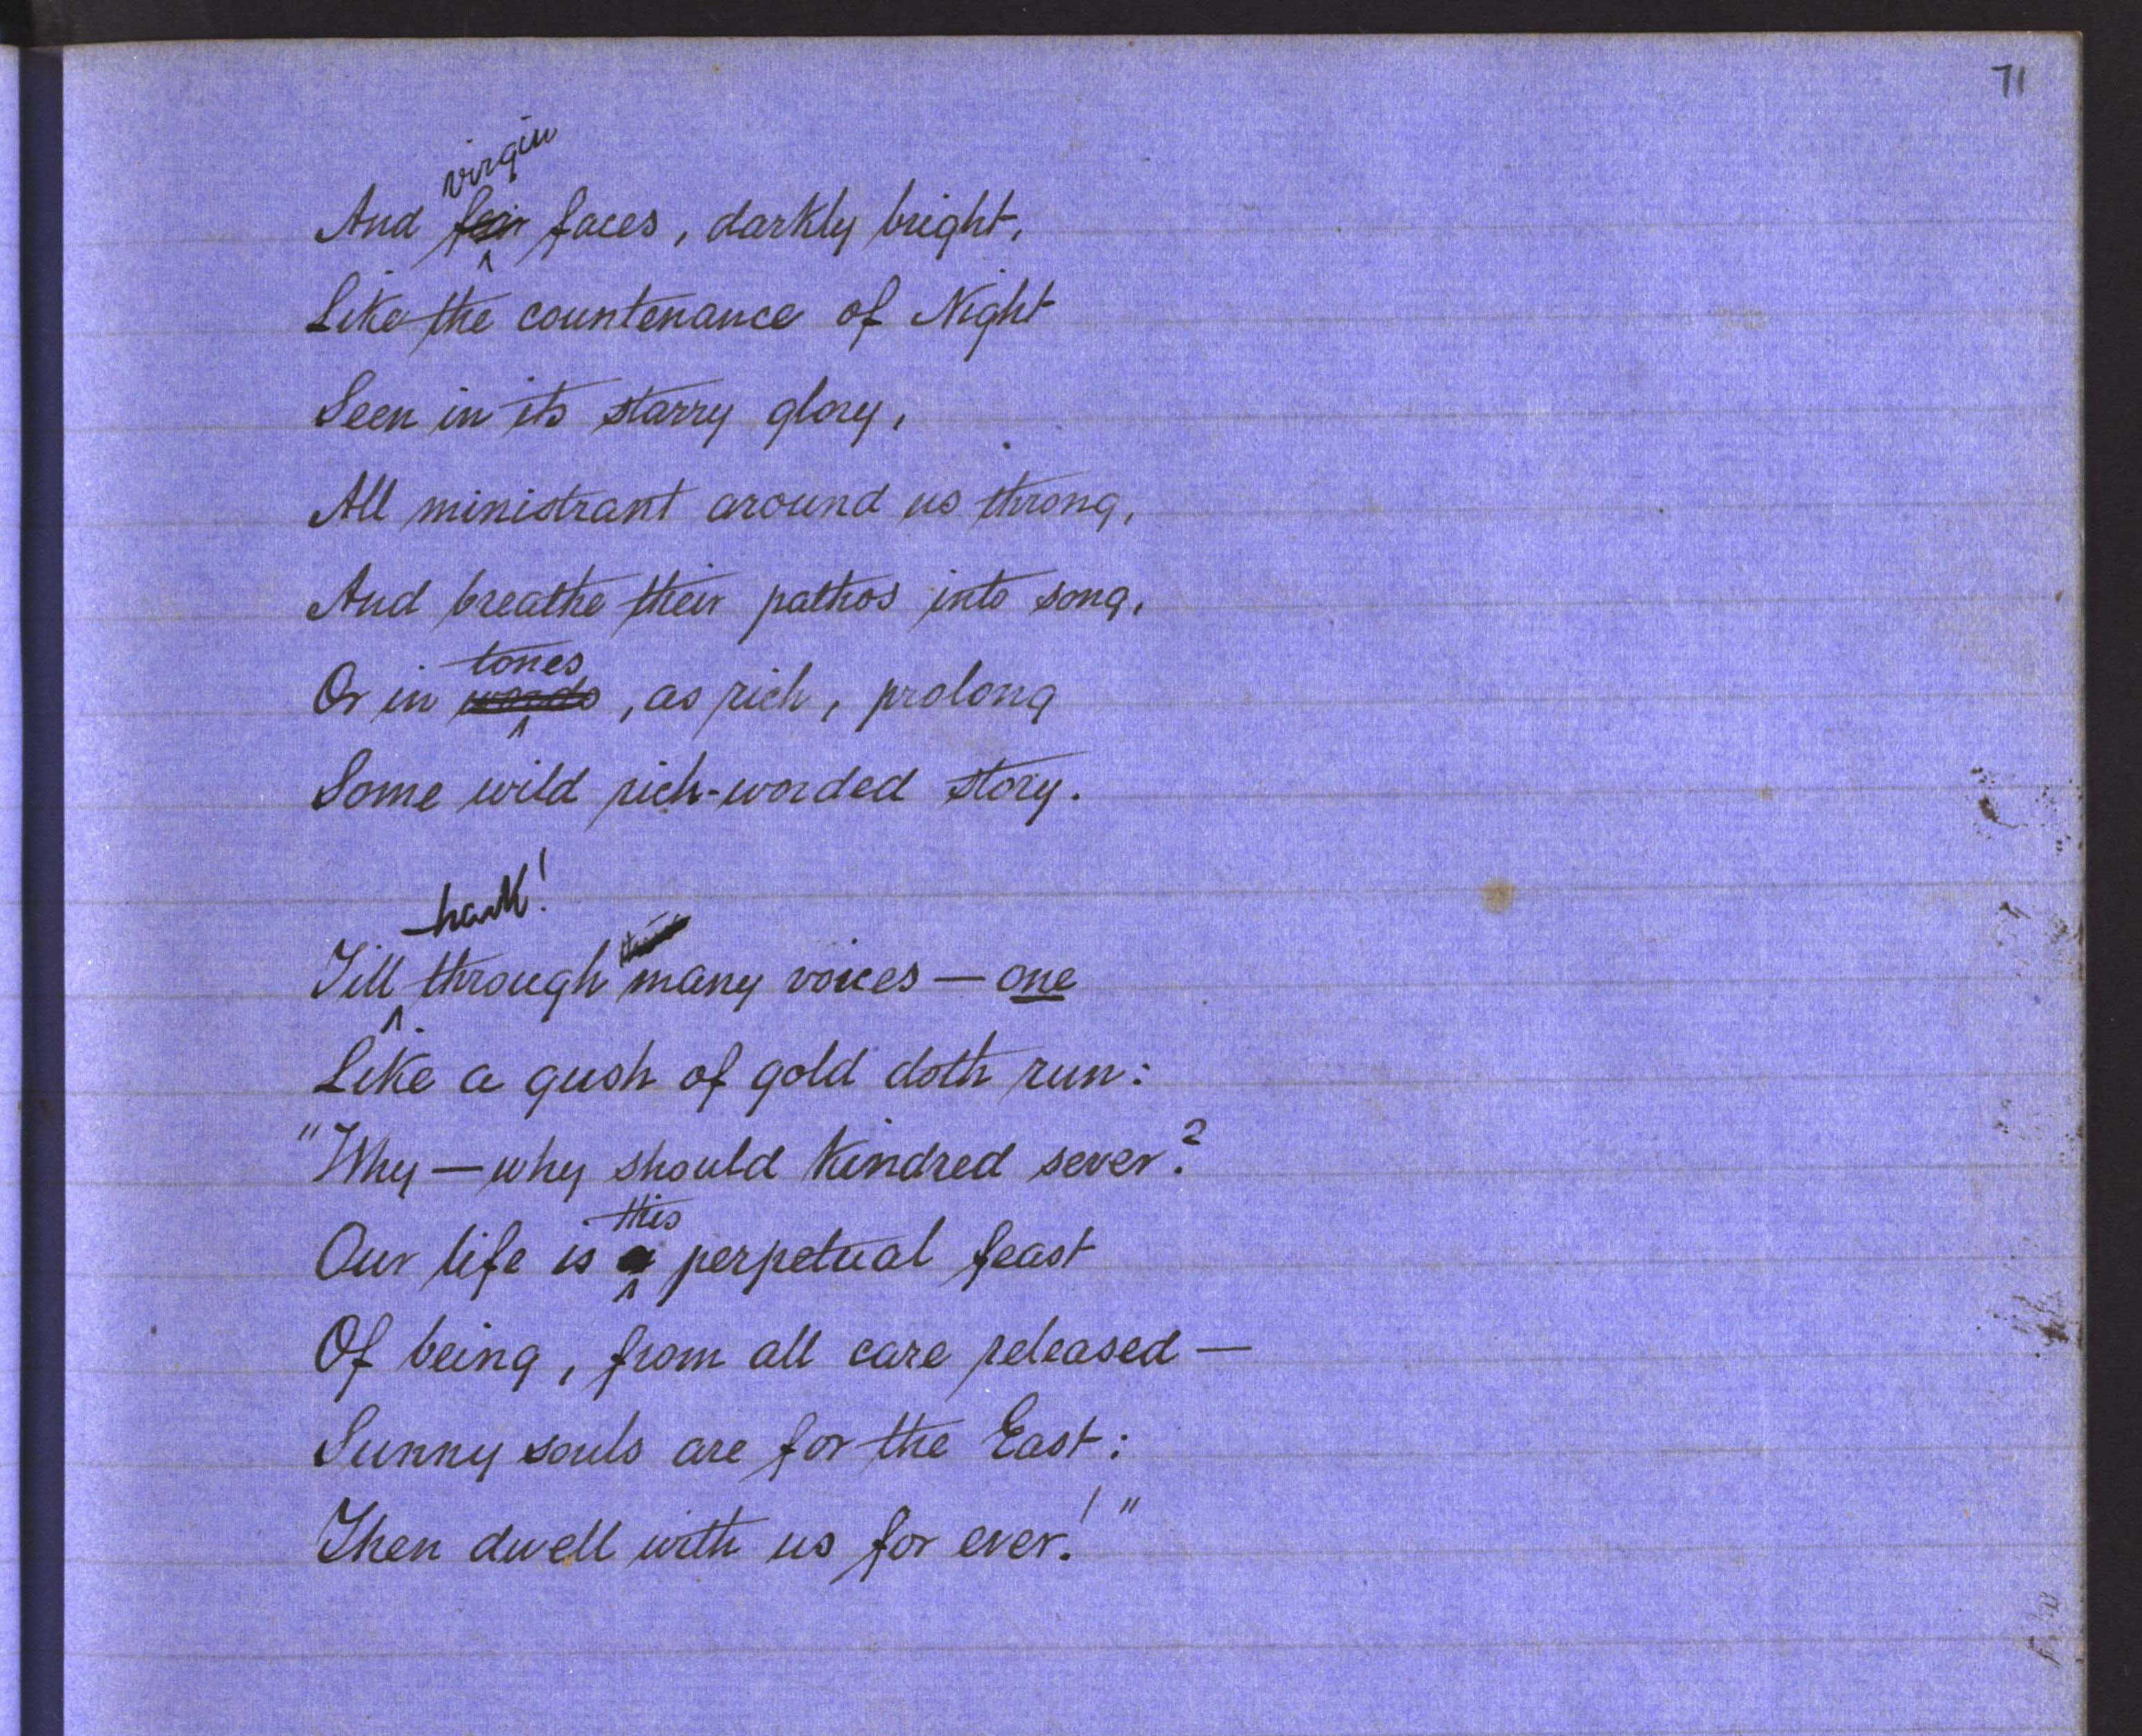 71
virgin
And fair faces, darkly bright,
Like the countenance of Night
Seen in its starry glory,
All ministrant around us throng,
And breathe their pathos into song,
tones
Or in words, as rich, prolong
Some wild rich-worded story.
hark!
Till through many voices — one
Like a gush of gold doth run:
"Why — why should kindred sever?
this
Our life is a perpetual feast
Of being, from all care released —
Sunny souls are for the East:
Then dwell with us for ever!"